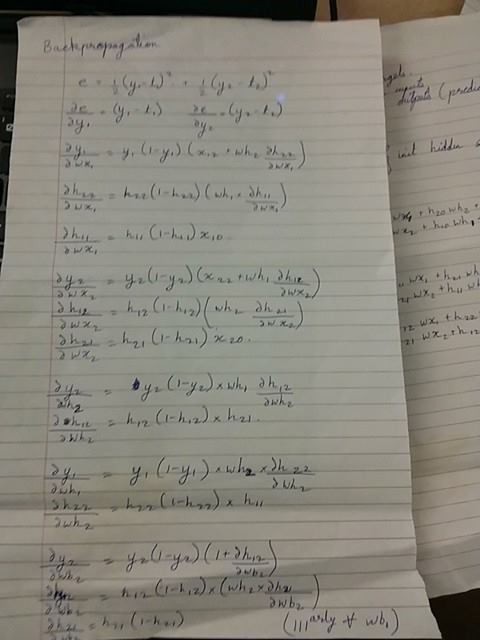 Backpropagation
e = ½(y₁-t₁)² + ½(y₂-t₂)²
∂e/∂y₁ = (y₁-t₁) ∂e/∂y₂ = (y₂-t₂)
∂y₁/∂wx₁ = y₁(1-y₁)(x₁₂ + wh₂ ∂h₂₂/∂wx₁)
∂h₂₂/∂wx₁ = h₂₂(1-h₂₂)(wh₁ × ∂h₁₁/∂wx₁)
∂h₁₁/∂wx₁ = h₁₁(1-h₁₁)x₁₀.
∂y₂/∂wx₂ = y₂(1-y₂)(x₂₂ + wh₁ ∂h₁₂/∂wx₂)
∂h₁₂/∂wx₂ = h₁₂(1-h₁₂)(wh₂ ∂h₂₁/∂wx₂)
∂h₂₁/∂wx₂ = h₂₁(1-h₂₁)x₂₀.
∂y₂/∂wh₂ = y₂(1-y₂) × wh₁ ∂h₁₂/∂wh₂
∂h₁₂/∂wh₂ = h₁₂(1-h₁₂) × h₂₁.
∂y₁/∂wh₁ = y₁(1-y₁) × wh₂ × ∂h₂₂/∂wh₂
∂h₂₂/∂wh₂ = h₂₂(1-h₂₂) × h₁₁
∂y₂/∂wb₂ = y₂(1-y₂)(1+∂h₁₂/∂wb₂)
= h₁₂(1-h₁₂)×(wh₂ × ∂h₂₁/∂wb₂)
∂h₂₁/∂wb₂ = h₂₁(1-h₂₁) (|||arly ∀ wb₁)
inputs
outputs (predic
init hidden
wx₁ + h₂₀ wh₂ +
wx₂ + h₁₀ wh₁
wx₁ + h₂₁ wh
wx₂ + h₁₁ wh
₁₂ wx₁ + h₂₂
wx₂ + h₁₂